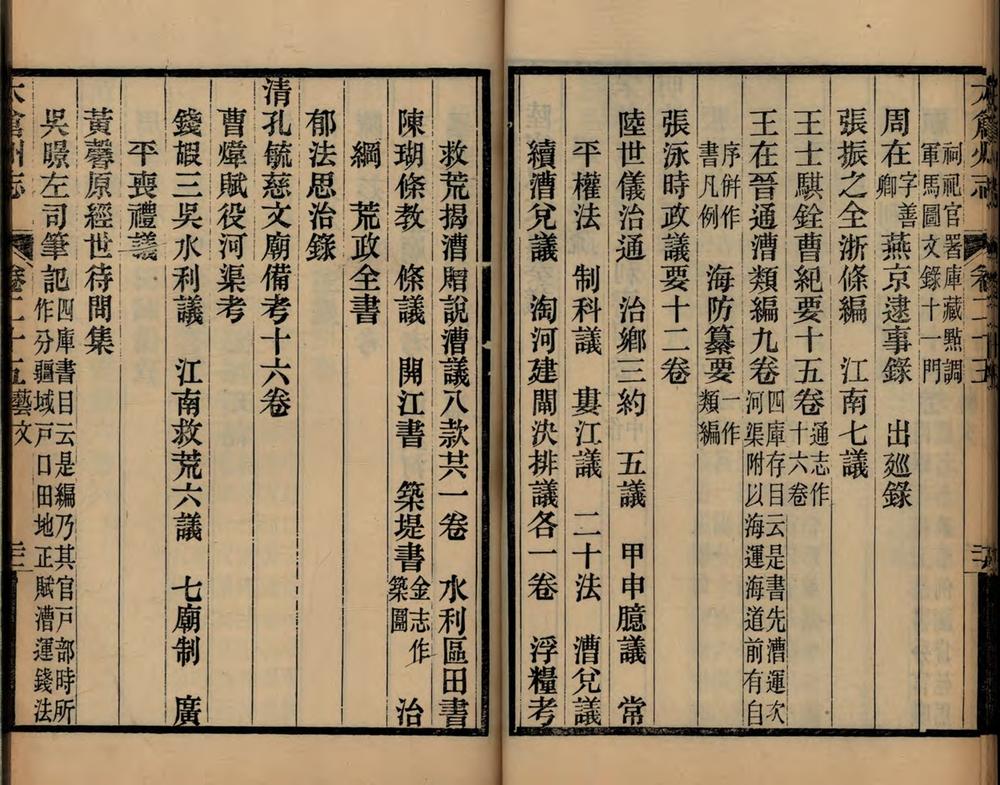 祠祀官署庫藏點調
軍馬圖文錄十一門
周在字善卿燕京逮事錄 出廵錄
張振之全浙條編 江南七議
王士騏銓曹紀要十五卷通志作十六卷
王在晉通漕類編九卷四庫存目云是書先漕運次河渠附以海運海道前有自
序併作書凡例 海防纂要一作類編
張泳時政議要十二卷
陸世儀治通 治鄉三約 五議 甲申臆議 常
平權法 制科議 婁江議 二十法 漕兌議
續漕兌議 淘河建閘決排議各一卷 浮糧考
救荒揭漕贈說漕議八款共一卷 水利區田書
陳瑚條教 條議 開江書 築堤書金志作築圍 治
綱 荒政全書
郁法思治錄
清孔毓慈文廟備考十六卷
曹煒賦役河渠考
錢嘏三吳水利議 江南救荒六議 七廟制 廣
平喪禮議
黃馨原經世待問集
吳暻左司筆記四庫書目云是編乃其官戶部時所作分疆域戶口田地正賦漕運錢法
太倉州志 卷二十五 藝文